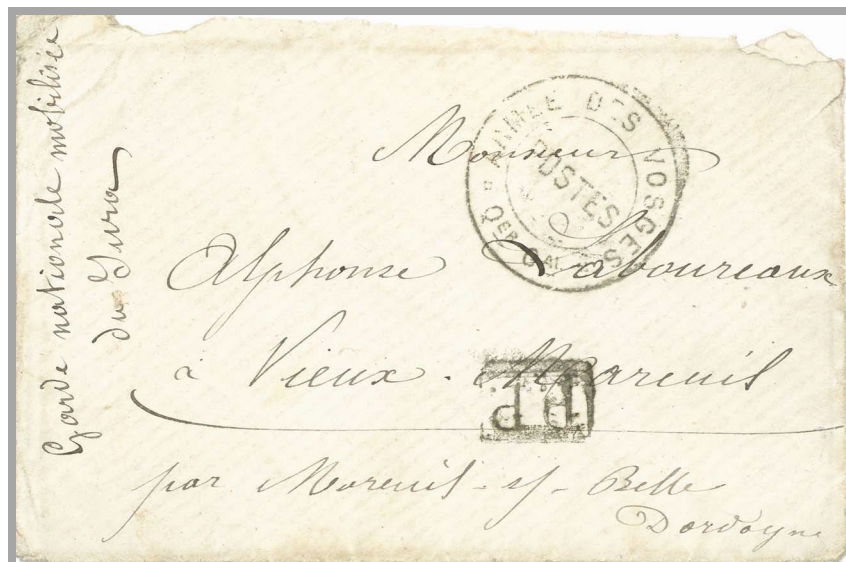 Garde nationale mobilisée
du Jura
ARMÉE DES VOSGES
POSTES
QER GAL
Monsieur
Alphonse Laboureaux
à Vieux-Mareuil
P.P.
par Mareuil-s/-Belle
Dordogne